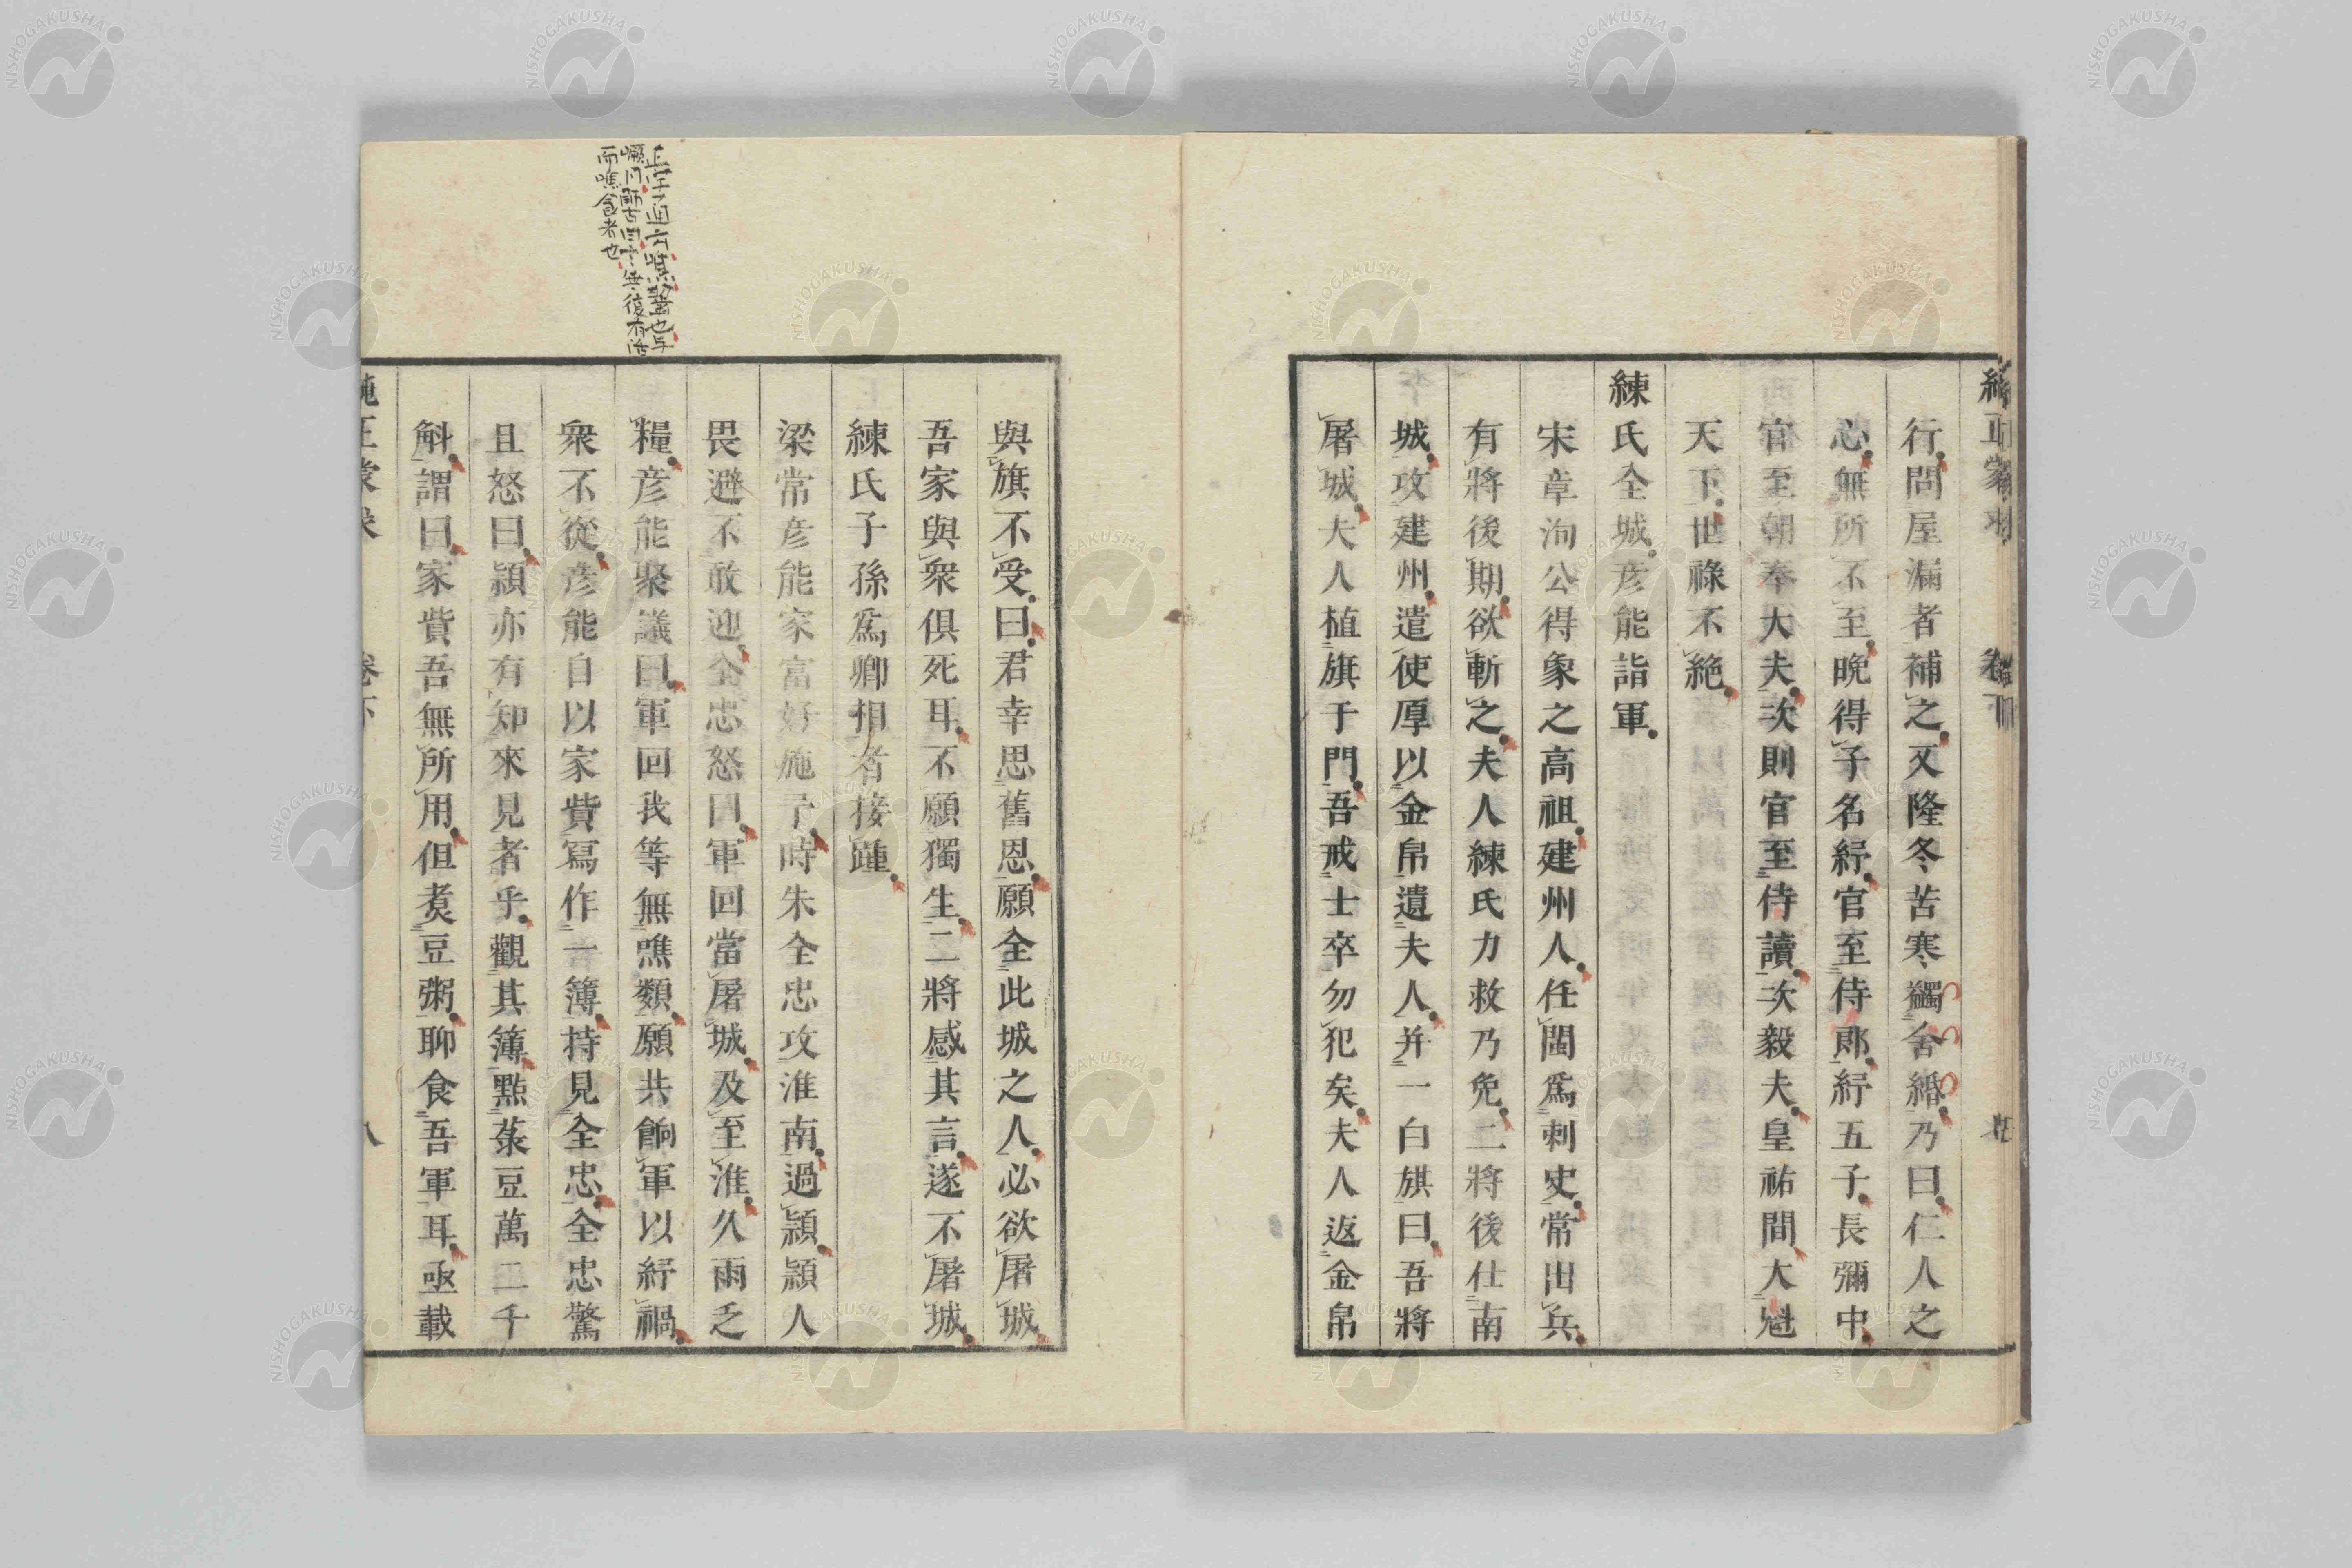 行問屋漏者補之又隆冬苦寒蠲舍緡乃曰仁人之
心無所不至晩得子名紓官至侍郎紓五子長彌中
官至朝奉大夫次則官至侍讀次毅夫皇祐間大魁
天下世祿不絶
練氏全城彦能詣軍
宋章洵公得象之高祖建州人任閩爲刺史常出兵
有將後期欲斬之夫人練氏力救乃免二將後仕南
城攻建州遣使厚以金帛遺夫人并一白旗曰吾將
屠城大人植旗于門吾戒士卒勿犯矣夫人返金帛
與旗不受曰君幸思舊恩願全此城之人必欲屠城
吾家與衆俱死耳不願獨生二將感其言遂不屠城
練氏子孫爲卿相者接踵
梁常彦能家富好施予時朱全忠攻淮南過潁潁人
畏避不敢迎全忠怒曰軍回當屠城及至淮久雨乏
糧彦能聚議曰軍回我等無噍類願共餉軍以紓禍
衆不從彦能自以家費寫作一簿持見全忠全忠驚
且怒曰潁亦有知來見者乎觀其簿點菉豆萬二千
斛謂曰家費吾無所用但煮豆粥聊食吾軍耳亟載
而噍食者也
卷下
八
NISHOGAKUSHA